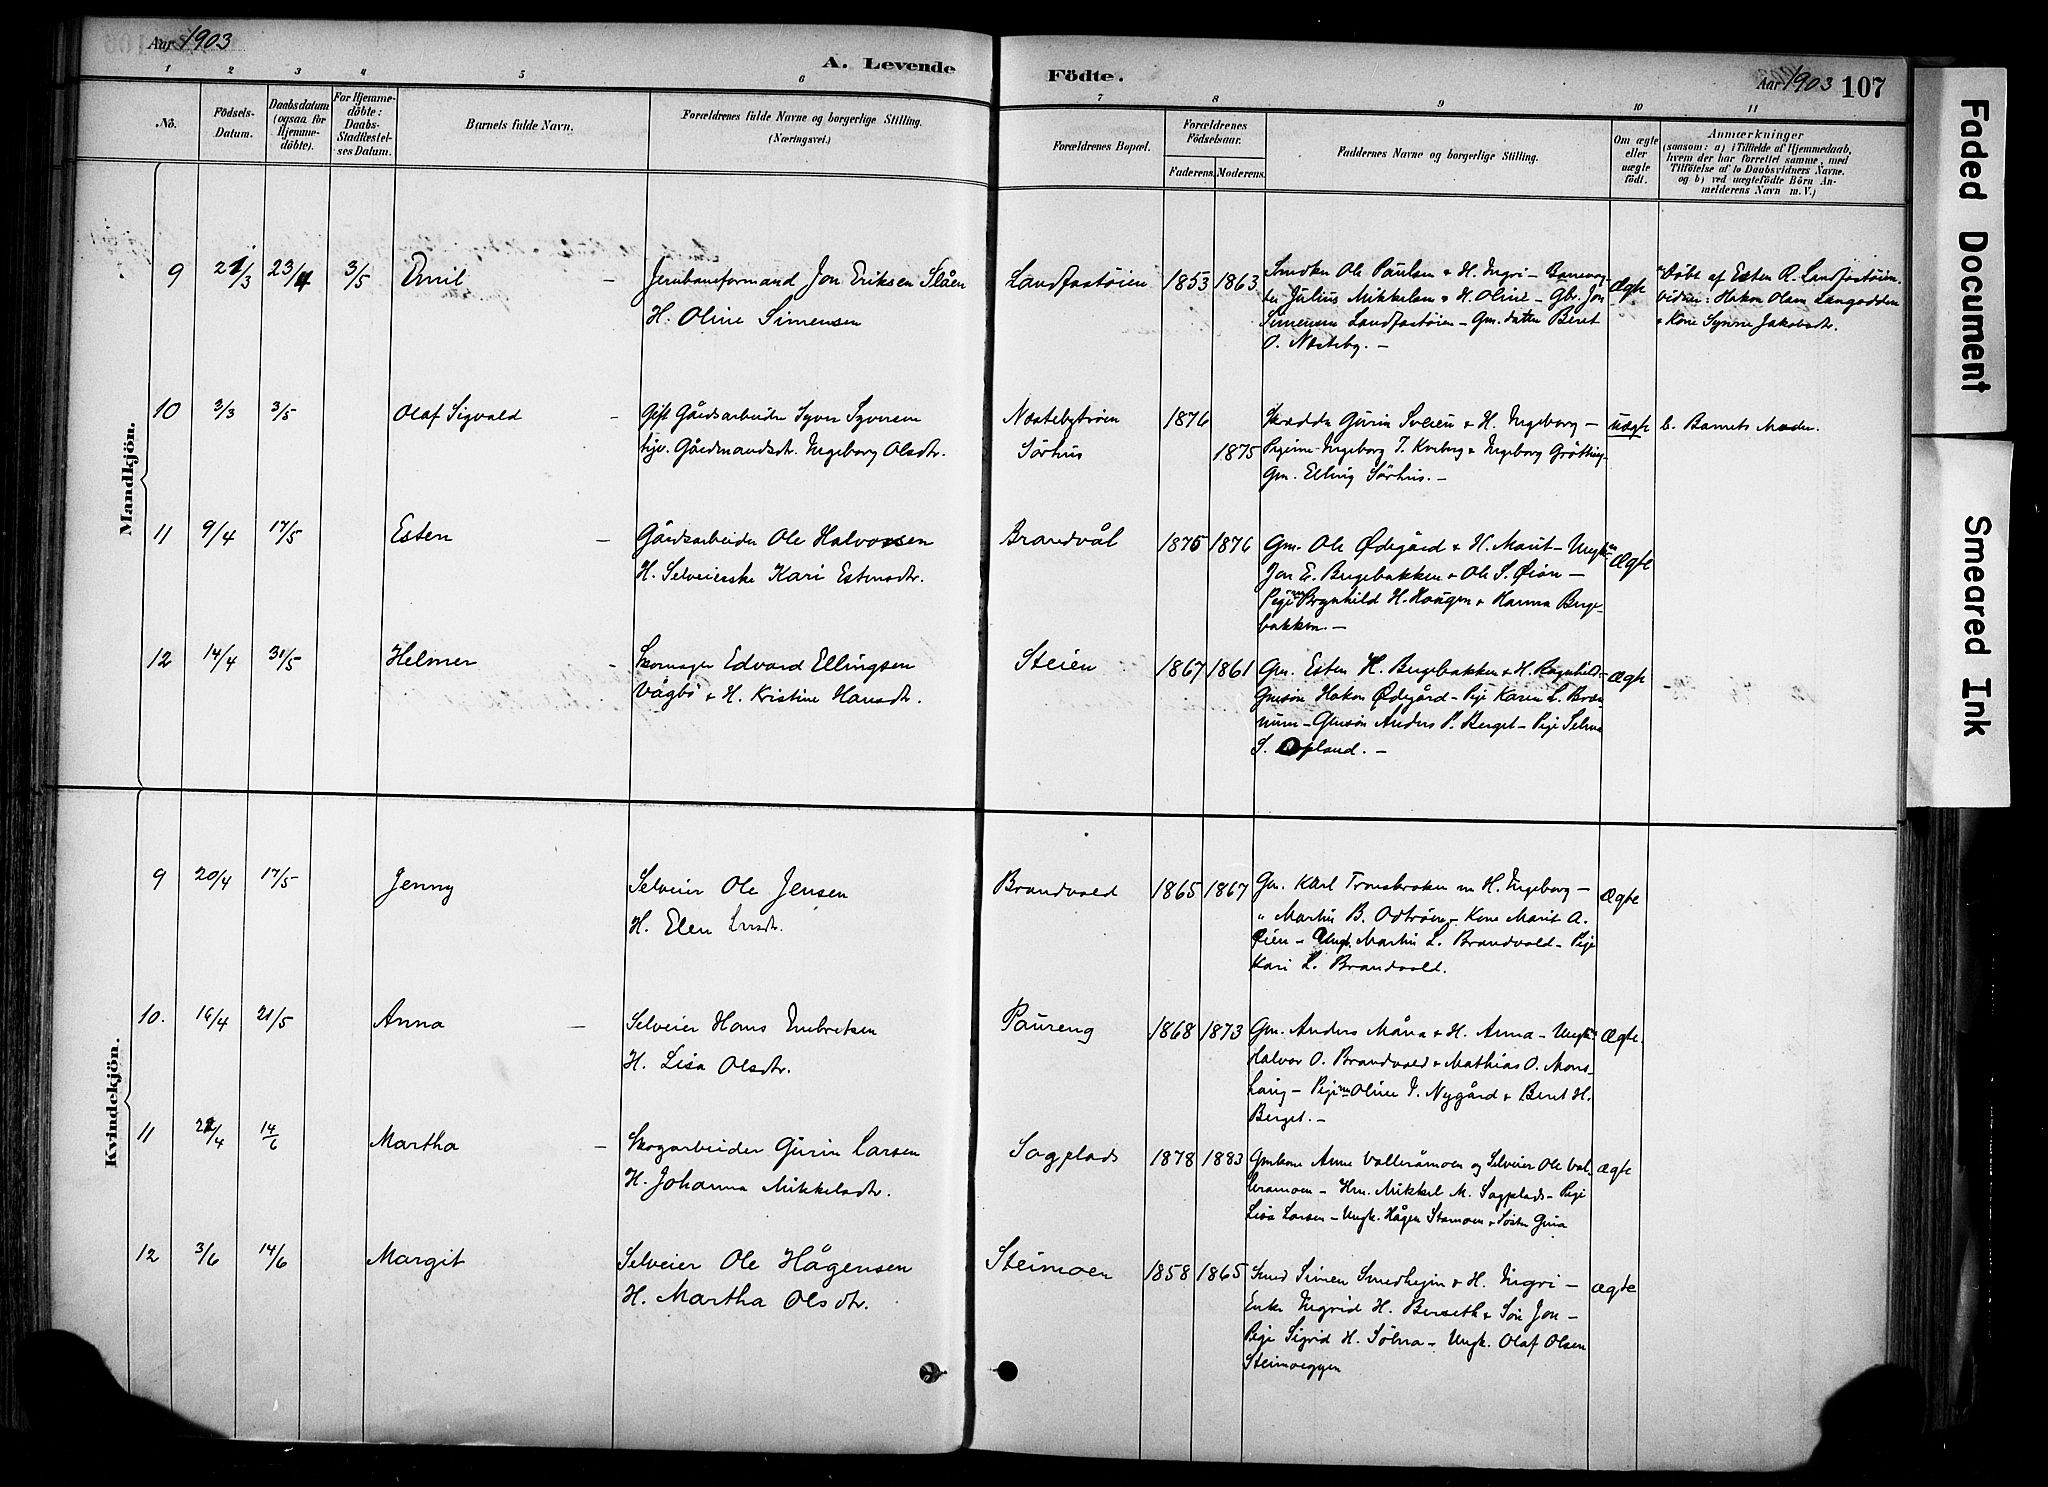 Aar 1903
A. Levende Födte.
Aar 1903 107
1 2 3 4 5 6 7 8 9 10 11
No.
Födsels-Datum.
Daabsdatum (ogsaa for Hjemme-döbte).
For Hjemme-döbte: Daabs-Stadfæstel-ses Datum.
Barnets fulde Navn.
Forældrenes fulde Navne og borgerlige Stilling.
(Næringsvei.)
Forældrenes Bopæl.
Forældrenes Födselsaar.
Faderens. Moderens.
Faddernes Navne og borgerlige Stilling.
Om ægte eller uægte født.
Anmærkninger
(saasom: a) i Tilfælde af Hjemmedaab,
hvem der har forrettet samme, med
Tilføielse af to Daabsvidners Navne.
og b) ved uægtefödte Börn An-
melderens Navn m. V.)
Mandkjön.
9 21/3 23/4 3/5 Emil - Jernbaneformand Jon Eriksen Slåen
H. Oline Simensen
Landfastøien 1853 1863
Smeden Ole Paulsen & H. Ingri - Banevog-
ter Julius Mikkelsen & H. Oline - Gbr. Jon
Simensen Landfastøien - Gm. datter Beret
O. Næsteby. -
Ægte
Døbt af Esten R. Landfastøien.
Vidner: Hakon Olsen Langodden
& Kone Synne Jakobsdtr.
10 3/3 3/5 Olaf Sigvald - Gift Gårdsarbeider Syver Syversen
Ugv. Gårdmandsdtr. Ingeborg Olsdtr.
Næstebytrøen 1876
Sørhus 1875
Skrædder Gurin Sveien & H. Ingeborg -
Pigerne Ingeborg T. Kveberg & Ingeborg Grøtting
Gm. Elling Sørhus. -
uægte b. Barnets Moder.
11 9/4 17/5 Esten - Gårdsarbeider Ole Halvorsen
H. Selveierske Kari Estensdtr.
Brandvål 1875 1876
Gm. Ole Ødegård & H. Marit - Ungk.
Jon E. Bergebakken & Ole S. Øien -
Pigerne Brynhild H. Haugen & Hanna Berge-
bakken. -
Ægte
12 14/4 31/5 Helmer - Skomager Edvard Ellingsen
Vågbø & H. Kristine Hansdtr.
Steien 1867 1861
Gm. Esten H. Bergebakken & H. Ragnhild -
Gmsøn Hakon Ødegård - Pige Karen L. Bræ-
num - Gmsøn Anders P. Berget - Pige Selma
S. Opland. -
Ægte
Kvindekjön.
9 20/4 17/5 Jenny Selveier Ole Jensen
H. Elen Larsdtr.
Brandvold 1865 1867
Gm. Karl Tronsbroken m H. Ingeborg -
" Martin B. Odtrøen - Kone Marit A.
Øien - Ungk. Martin L. Brandvold - Pige
Kari L. Brandvold.
Ægte
10. 16/4 21/5 Anna - Selveier Hans Embretsen
H. Lisa Olsdtr.
Paureng 1868 1873
Gm. Anders Måna & H. Anna - Ungk.
Halvor O. Brandvold & Mathias O. Mons-
haug - Pigerne Oline T. Nygård & Beret H.
Berget. -
Ægte.
11 21/4 14/6 Martha - Skogarbeider Gurin Larsen
H. Johanna Mikkelsdtr.
Sagplads 1878 1883
Gmkone Anne Volleråmoen og Selveier Ole Vol-
leramoen - Hm. Mikkel M. Sagplads - Pige
Lisa Larsen - Ungk. Hågen Stamoen & Søster Gina
ægte
12 3/6 14/6 Margit Selveier Ole Hågensen
H. Martha Olsdtr.
Steimoen 1858 1865
Smed Simen Smedhejm & H. Ingri -
Enke Ingrid H. Berseth & Søn Jon -
Pige Sigrid H. Sølna - Ungk. Olaf Olsen
Steimoeggen
ægte
Faded Document
Smeared Ink